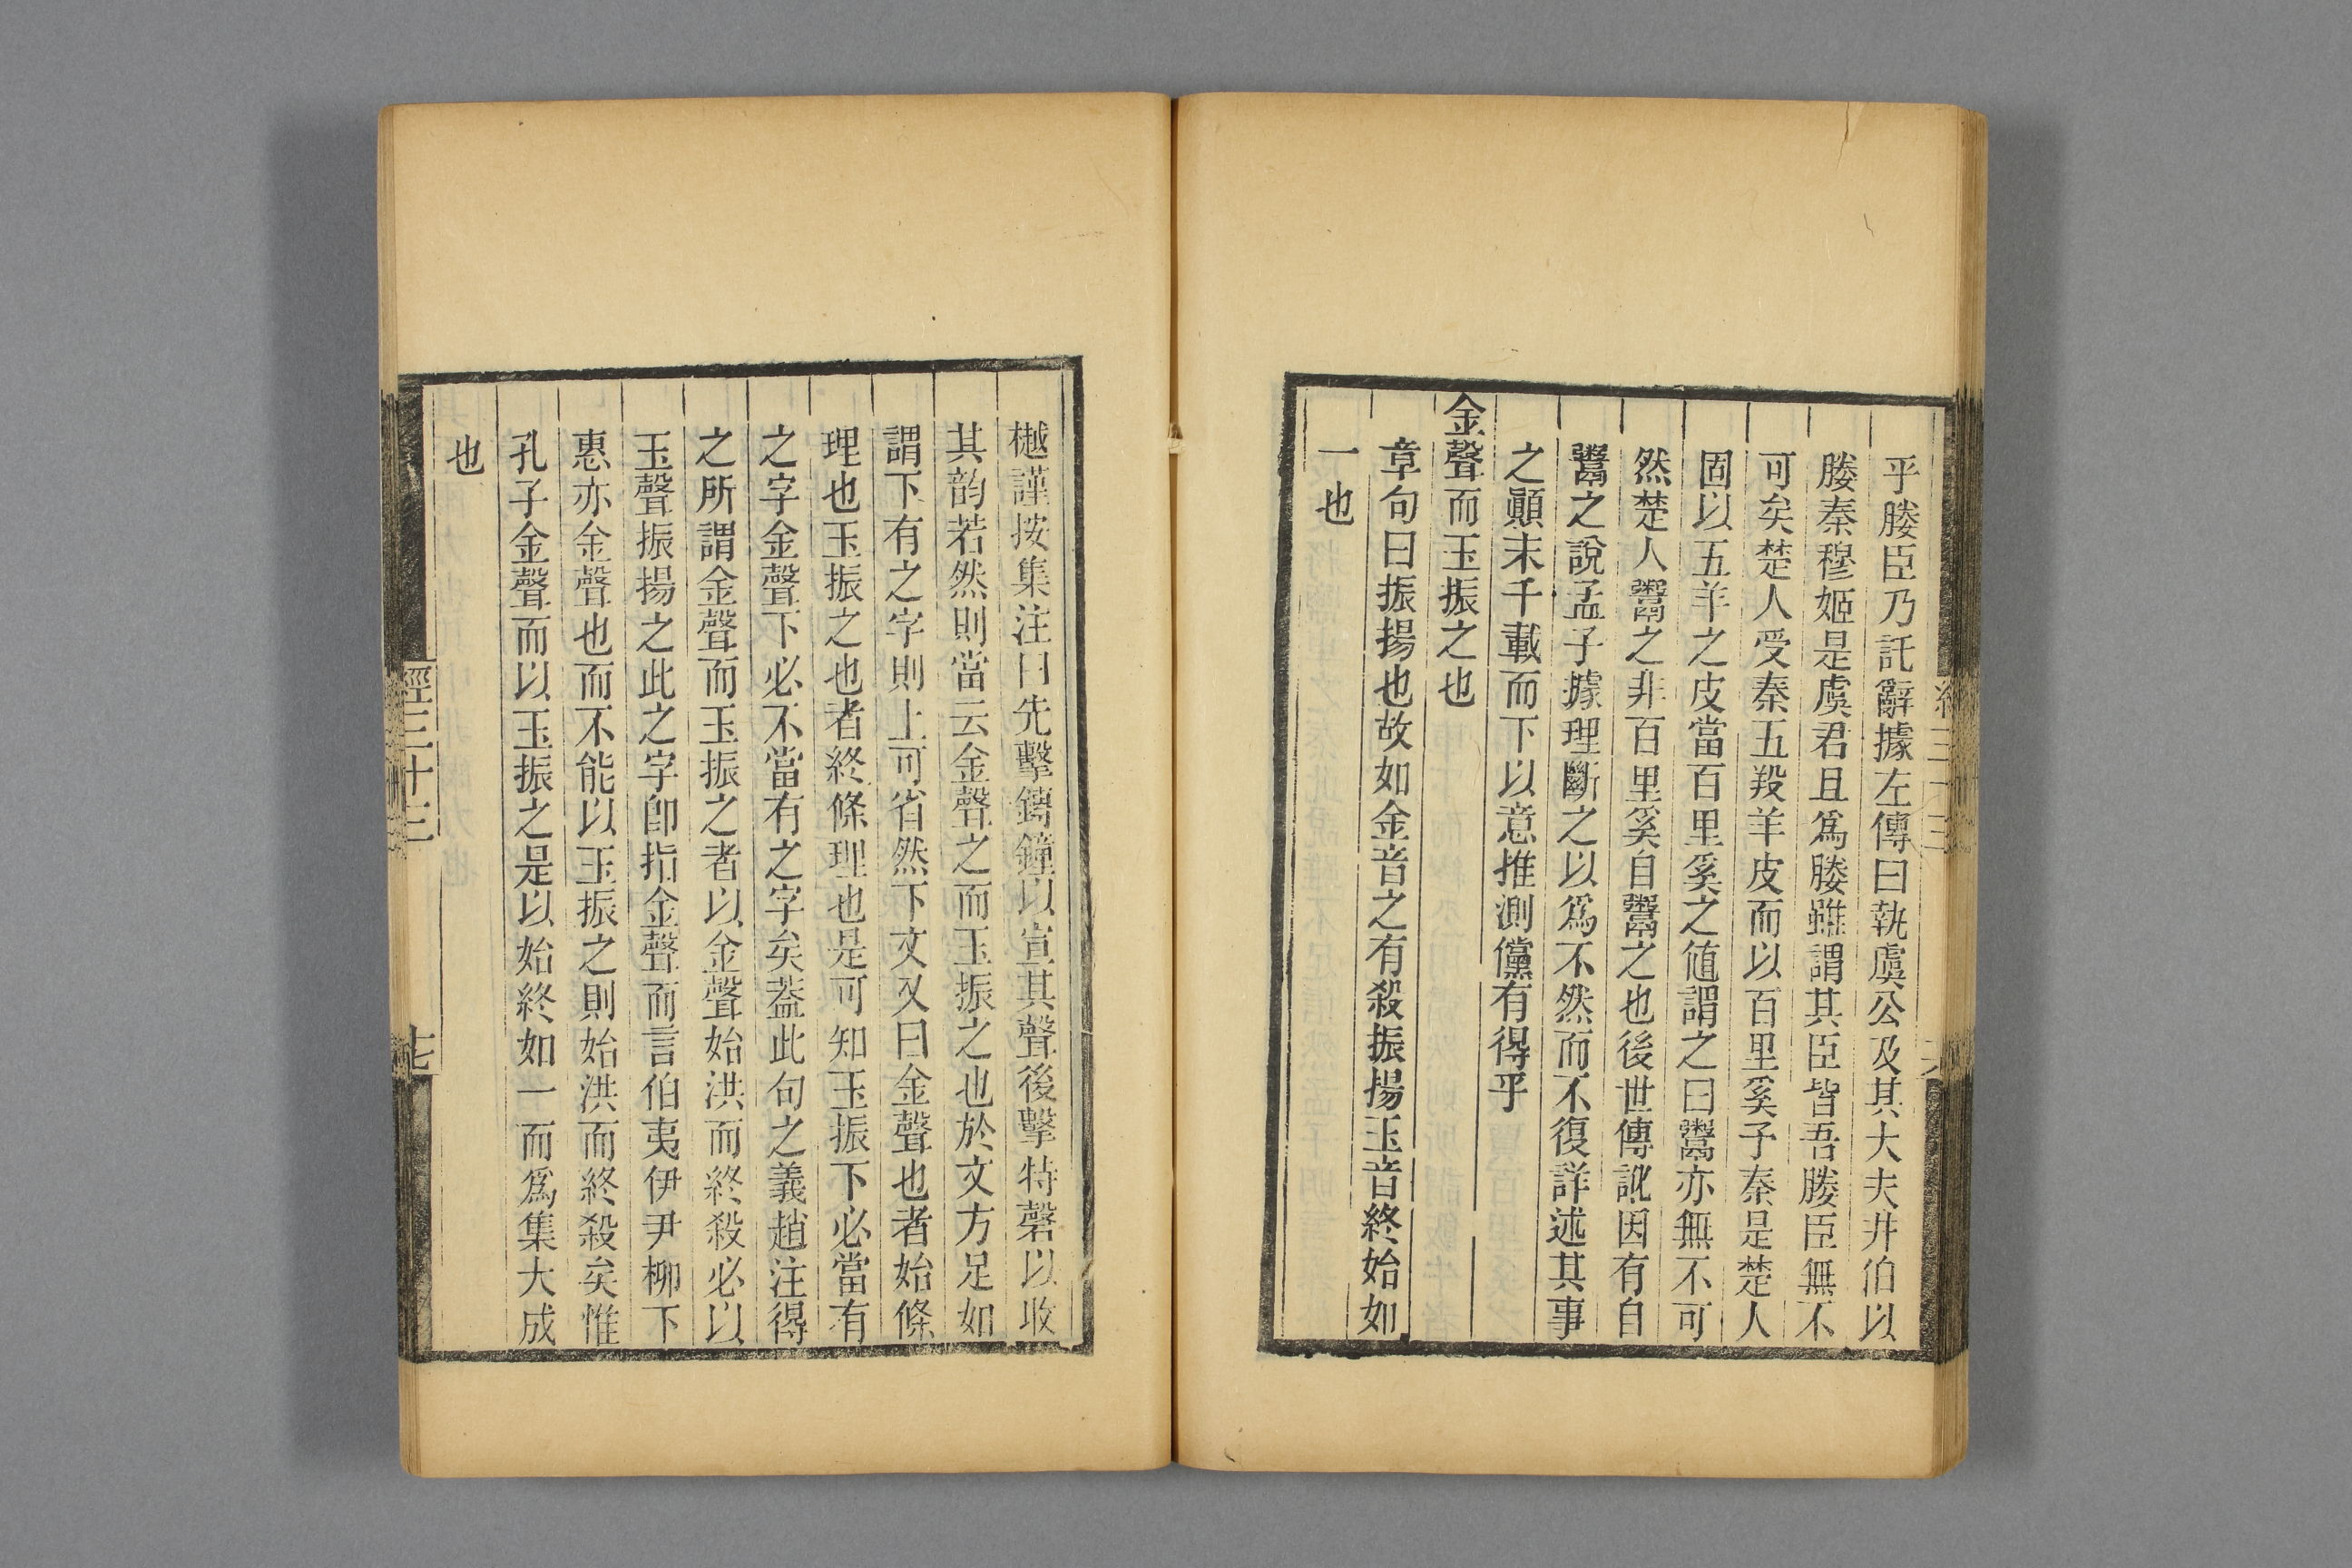 乎媵臣乃託辭據左傳曰執虞公及其大夫井伯以
媵秦穆姬是虞君且爲媵雖謂其臣皆吾媵臣無不
可矣楚人受秦五羖羊皮而以百里奚予秦是楚人
固以五羊之皮當百里奚之値謂之曰鬻亦無不可
然楚人鬻之非百里奚自鬻之也後世傳訛因有自
鬻之說孟子據理斷之以爲不然而不復詳述其事
之顚末千載而下以意推測儻有得乎
金聲而玉振之也
章句曰振揚也故如金音之有殺振揚玉音終始如
一也
樾謹按集注曰先擊鎛鐘以宣其聲後擊特磬以收
其韵若然則當云金聲之而玉振之也於文方足如
謂下有之字則上可省然下文又曰金聲也者始條
理也玉振之也者終條理也是可知玉振下必當有
之字金聲下必不當有之字矣葢此句之義趙注得
之所謂金聲而玉振之者以金聲始洪而終殺必以
玉聲振揚之此之字卽指金聲而言伯夷伊尹柳下
惠亦金聲也而不能以玉振之則始洪而終殺矣惟
孔子金聲而以玉振之是以始終如一而爲集大成
也
經三十三
七